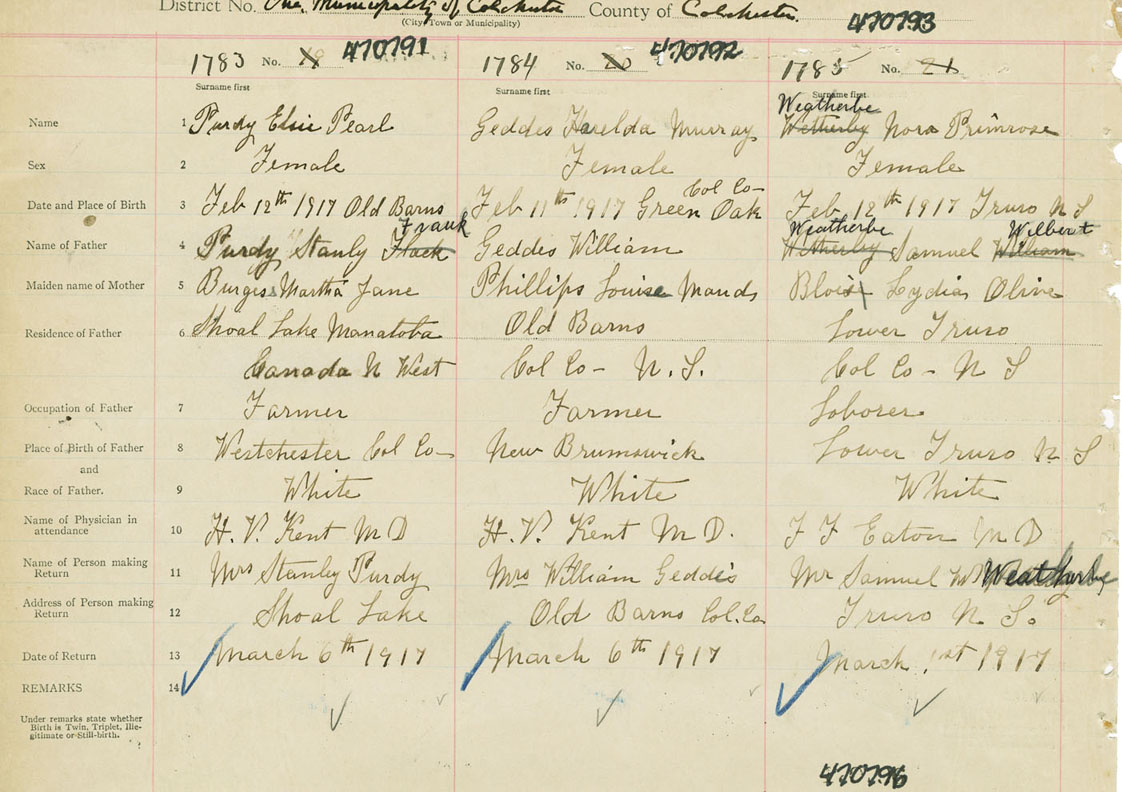 District No. One, Municipality of Colchester County of Colchester.
(City, Town or Municipality)
470793
1783 No. 19 470791 1784 No. 20 470792 1785 No. 21
Surname first Surname first Surname first
Weatherbe
Name 1 Purdy Elsie Pearl Geddes Harelda Murray Wetherby Nora Primrose
Sex 2 Female Female Female
Col Co-
Date and Place of Birth 3 Feb 12th 1917 Old Barns Feb 11th 1917 Green Oak Feb 12th 1917 Truro N S
Frank Weatherbe Wilbert
Name of Father 4 Purdy Stanly Geddes William Wetherby Samuel William
Maiden name of Mother 5 Burges Martha Jane Phillips Louise Mands Blois Lydia Olive
Residence of Father 6 Shoal Lake Manatoba Old Barns Lower Truro
Canada N West Col Co- N. S. Col Co- N S
Occupation of Father 7 Farmer Farmer Loborer
Place of Birth of Father 8 Westchester Col Co- New Brunswick Lower Truro N. S
and
Race of Father. 9 White White White
Name of Physician in
attendance 10 H. V. Kent M D H. V. Kent M D. F F Eaton M D
Name of Person making
Return 11 Mrs Stanly Purdy Mrs William Geddes Mr Samuel W Weatherbe
Address of Person making
Return 12 Shoal Lake Old Barns Col. Co Truro N. S.
Date of Return 13 March 6th 1917 March 6th 1917 March 1st 1917
REMARKS 14
Under remarks state whether
Birth is Twin, Triplet, Ille-
gitimate or Still-birth.